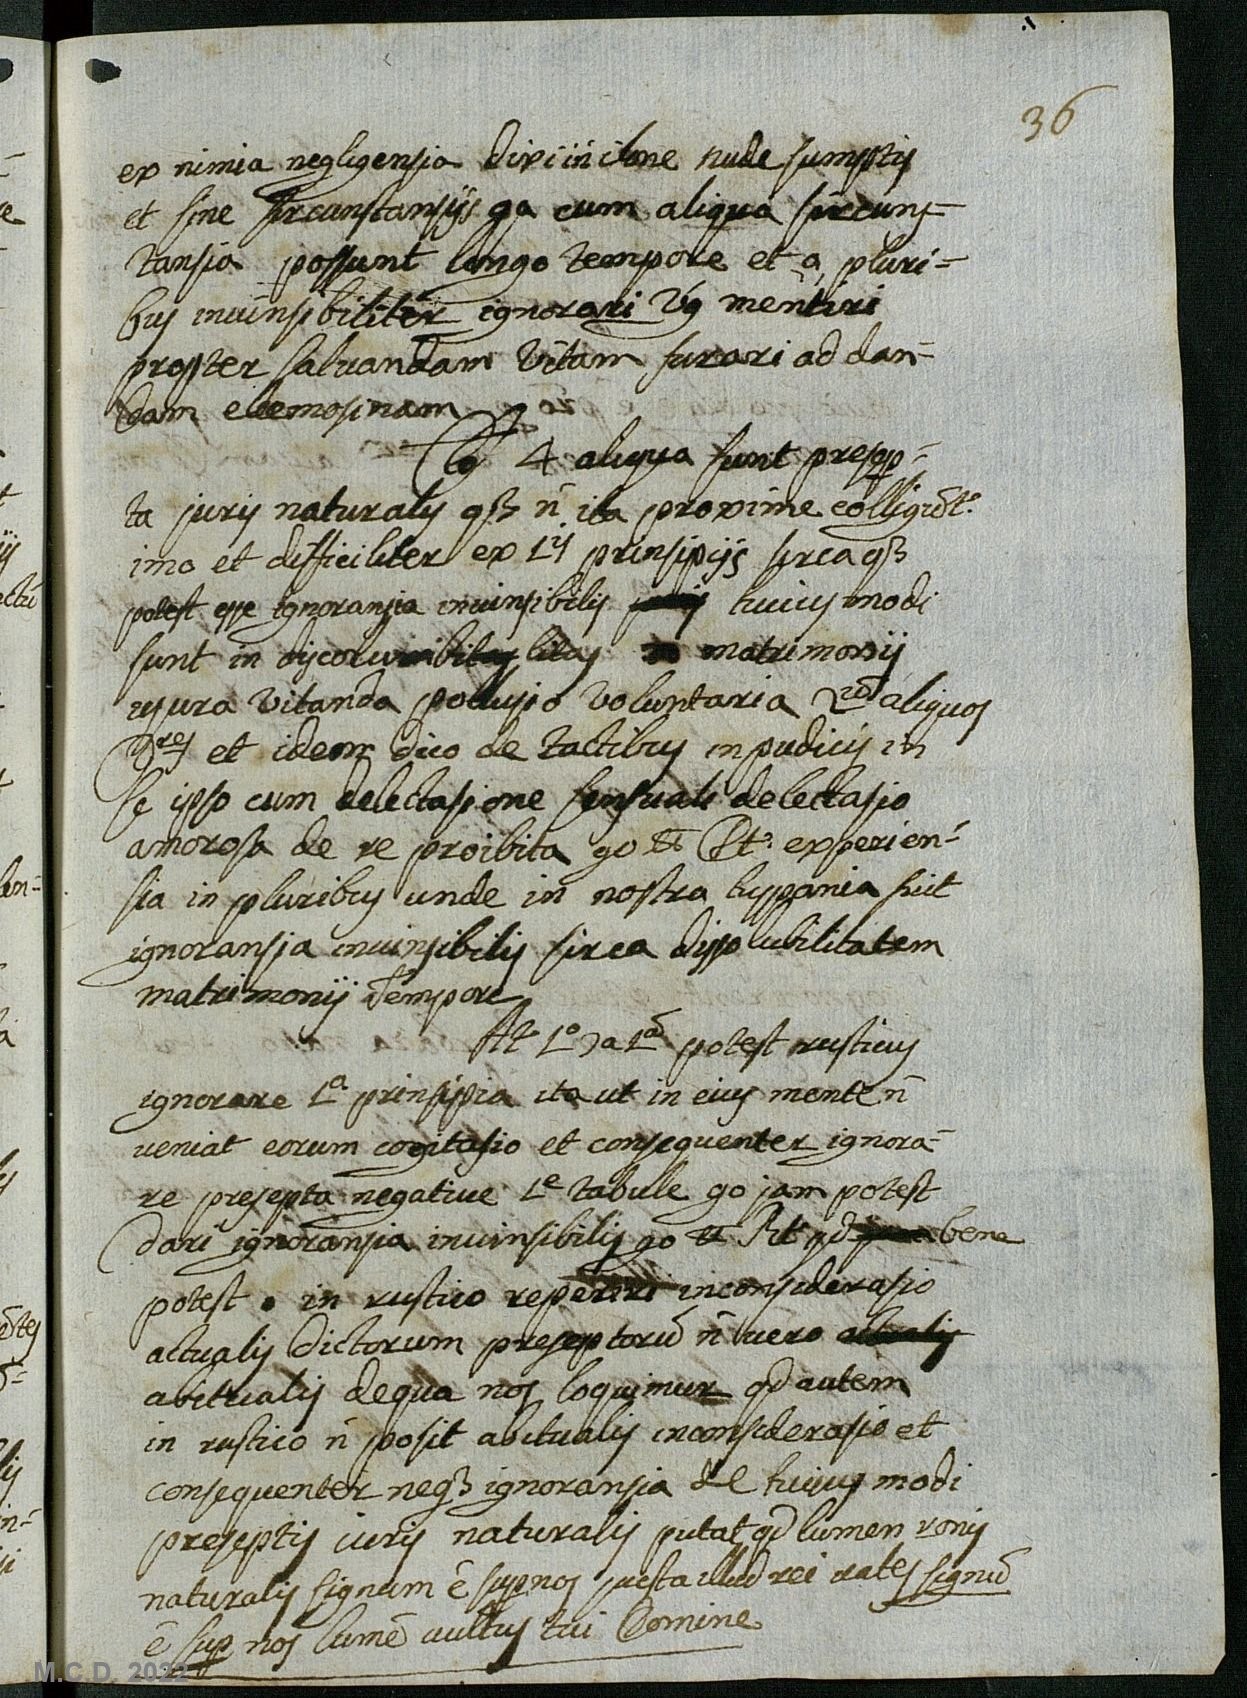 36
ex nimia negligensia dixi in ilone nude sumptis
et sine sircunstansijs qa cum aliqua sircuns-
tansia possunt longo tempore et a pluri=
bus inuinsibiliter ignorari Vg mentiri
propter saluandam vitam furari ad dan=
dam elemosinam
4 aliqua sunt presep-
ta juris naturalis qȝ ñ ita proxime colligũt.
imo et difficiliter ex 1is prinsipijs sirca qȝ
potest esse ignoransia inuinsibilis huius modi
sunt indisolubilitas matrimonij
usura vitanda polusio voluntaria aliquos
Dres et idem dico de tactibus inpudicis in
se ipso cum delectasione sensuali delectasio
amorosa de re proibita go Pt. experien-
sia in pluribus unde in nostra hyspania fuit
ignoransia inuinsibilis sirca dissolubilitatem
matrimonij tempore
At 1o potest rusticus
ignorare 1a prinsipia ita ut in eius mente ñ
veniat eorum cogitasio et consequenter ignora-
re presepta negatiue 1e tabule go jam potest
dari ignoransia inuinsibilis go Rt qd bene
potest in rustico reperiri inconsiderasio
actualis dictorum preseptorũ ñ vero actualis
abitualis de qua nos loquimur qd autem
in rustico ñ posit abitualis inconsiderasio et
consequenter neqȝ ignoransia de huius modi
preseptis iuris naturalis putat qd lumen ronis
naturalis signum ẽ sup nos juesta illud rei vates signũ
ẽ sup nos lumẽ vultus tui Domine
M.C.D. 2022